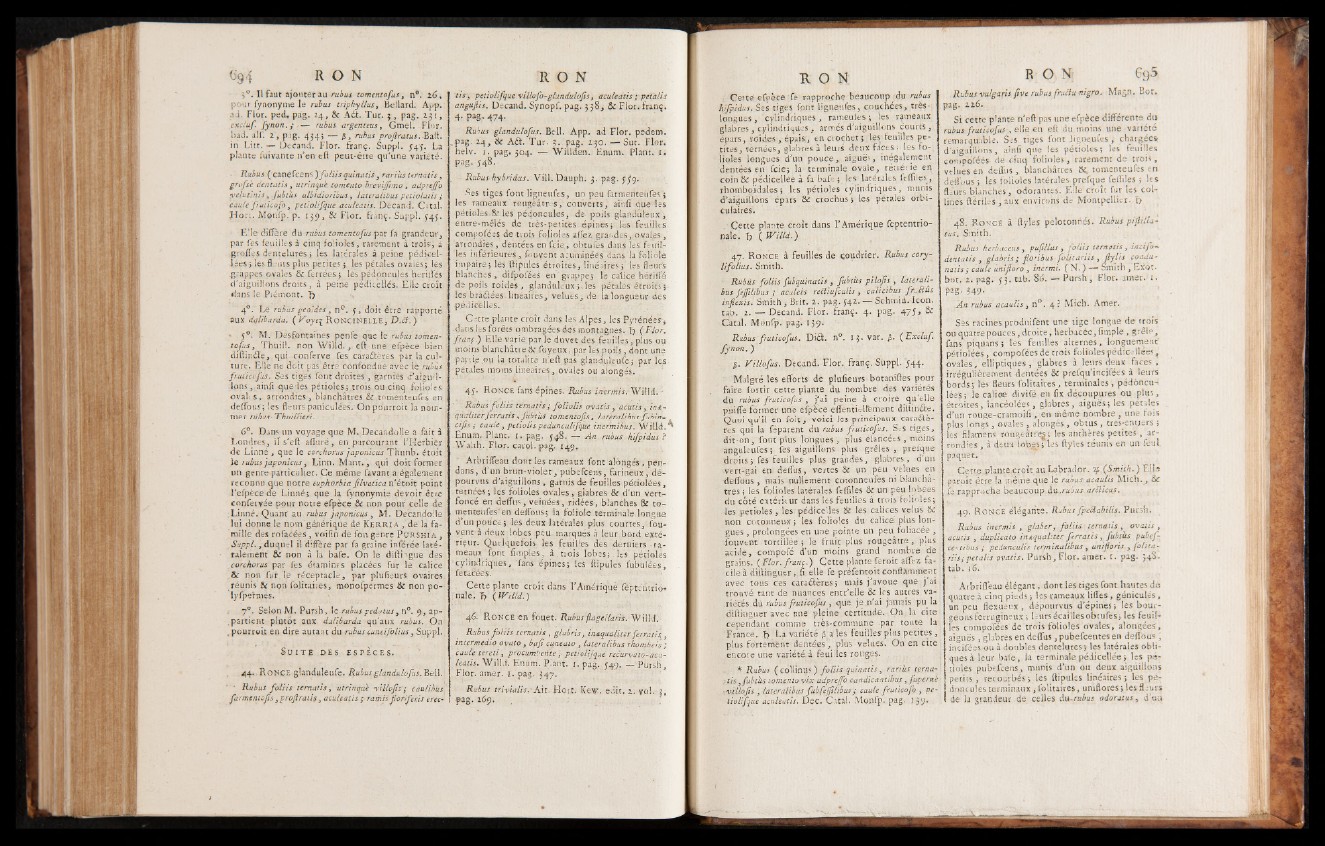 694 R O N
3°. Il faut ajouter au rubus tomentosus, n°. 26,
pour synonyme le rubus triphyllus, Bellard. App.
ad. Flor. ped. pag. 24, & Act. Tur. 3, pag. 231,
exclus. synon.; — rubus argenteus, Gmel. Flor.
bad. als. 2, pag. 434; — β, rubus prostratus. Bast.
in Litt. — Decand. Flor. franç. Suppl. 545. La
plante suivante n'en est peut-être qu'une variété.
Rubus (canescens) foliis quinatis, rariùs ternatis,
grossè dentatis, utrinquè tomento brevissimo, adpresso
velutinis, subtùs albidioribus, lateralibus petiolatis;
caule fruticoso, petiolisque aculeatis. Decand. Catal.
Hort. Monsp. p. 139, & Flor. franç. Suppl. 545.
Elle diffère du rubus tomentosus par sa grandeur,
par ses feuilles à cinq folioles, rarement à trois, à
grosses dentelures; les latérales à peine pédicel-
lées; les fleurs plus petites; les pétales ovales; les
grappes ovales & serrées; les pédoncules hérissés
d'aiguillons droits, à peine pédicellés. Elle croît
dans le Piémont. ♄
4°. Le rubus geoides, n°. 5, doit être rapporté
aux dalibarda. (Voyez RONCINELLE, Dict.)
5°. M. Desfontaines pense que le rubus tomen-
tosus, Thuil. non Willd., est une espèce bien
distincte, qui conserve ses caractères par la cul-
ture. Elle ne doit pas être confondue avec le rubus
fruticosus. Ses tiges sont droites, garnies d'aiguil-
lons, ainsi que les pétioles; trois ou cinq folioles
ovales, arrondies, blanchâtres & tomenteuses en
dessous; les fleurs paniculées. On pourroit la nom-
mer rubus Thuillieri.
6°. Dans un voyage que M. Decandolle a fait à
Londres, il s'est assuré, en parcourant l'Herbier
de Linné, que le corchorus japonicus Thunb. étoit
le rubus japonicus, Linn. Mant., qui doit former
un genre particulier. Ce même savant a également
reconnu que notre euphorbia silvatica n'étoit point
l'espèce de Linné; que la synonymie devoit être
conservée pour notre espèce & non pour celle de
Linné. Quant au rubus japonicus, M. Decandolle
lui donne le nom générique de KERRIA, de la fa-
mille des rosacées, voisin de son genre PURSHIA,
Suppl., duquel il diffère par sa graine insérée laté-
ralement & non à la base. On le distingue des
corchorus par ses étamines placées sur le calice
& non sur le réceptacle, par plusieurs ovaires
réunis & non solitaires, monospermes & non po-
lyspermes.
7°. Selon M. Pursh, le rubus pedatus, n°. 9, ap-
partient plutôt aux dalibarda qu'aux rubus. On
pourroit en dire autant du rubus cuneifolius, Suppl.
SUITE DES ESPÈCES.
44. RONCE glanduleuse. Rubus glandulosus. Bell.
Rubus foliis ternatis, utrinquè villosis; caulibus
sarmentosis, prostratis, aculeatis; ramis floriferis erec-
R O N
tis, petiolisque villoso-glandulosis, aculeatis; petalis
angustis. Decand. Synops. pag. 338, & Flor. franç.
4. pag. 474.
Rubus glandulosus. Bell. App. ad Flor. pedem.
pag. 24, & Act. Tur. 3. pag. 230. — Sut. Flor.
helv. 1. pag. 304. — Willden. Enum. Plant. 1.
pag. 548.
Rubus hybridus. Vill. Dauph. 3. pag. 559.
Ses tiges sont ligneuses, un peu sarmenteuses;
les rameaux rougeâtres, couverts, ainsi que les
pétioles & les pédoncules, de poils glanduleux,
entre-mêlés de très-petites épines; les feuilles
composées de trois folioles assez grandes, ovales,
arrondies, dentées en scie, obtuses dans les feuil-
les inférieures, souvent acuminées dans la foliole
impaire; les stipules étroites, linéaires; les fleurs
blanches, disposées en grappe; le calice hérissé
de poils roides, glanduleux; les pétales étroits;
les bractées linéaires, velues, de la longueur des
pédicelles.
Cette plante croît dans les Alpes, les Pyrénées,
dans les forêts ombragées des montagnes. ♄ (Flor.
franç.) Elle varie par le duvet des feuilles, plus ou
moins blanchâtre & soyeux, par les poils, dont une
partie ou la totalité n'est pas glanduleuse; par les
pétales moins linéaires, ovales ou alongés.
45. RONCE sans épines. Rubus inermis. Willd.
Rubus foliis ternatis; foliolis ovatis, acutis, inæ-
qualiter serratis, subtùs tomentosis, lateralibus subin-
cisis; caule, petiolis pedunculisque inermibus. Willd.
Enum. Plant. 1. pag. 548. — An rubus hispidus?
Walth. Flor. carol. pag. 149.
Arbrisseau dont les rameaux sont alongés, pen-
dans, d'un brun-violet, pubescens, farineux, dé-
pourvus d'aiguillons, garnis de feuilles pétiolées,
ternées; les folioles ovales, glabres & d'un vert-
foncé en dessus, veinées, ridées, blanches & to-
menteuses en dessous; la foliole terminale longue
d'un pouce; les deux latérales plus courtes, sou-
vent à deux lobes peu marqués à leur bord exté-
rieur. Quelquefois les feuilles des derniers ra-
meaux sont simples, à trois lobes; les pétioles
cylindriques, sans épines; les stipules subulées,
sétacées.
Cette plante croît dans l'Amérique septentrio-
nale. ♄ (Willd.)
46. RONCE en fouet. Rubus flagellaris. Willd.
Rubus foliis ternatis, glabris, inæqualiter serratis,
intermedio ovato, basi cuneato, lateralibus rhombeis;
caule tereti, procumbente, petiolisque recurvato-acu-
leatis. Willd. Enum. Plant. 1. pag. 549. — Pursh,
Flor. amer. 1. pag. 347.
Rubus trivialis. Ait. Hort. Kew. edit. 2. vol. 3.
pag. 269.
R O N
Cette espèce se rapproche beaucoup du rubus
hispidus. Ses tiges sont ligneuses, couchées, très-
longues, cylindriques, rameuses; les rameaux
glabres, cylindriques, armés d'aiguillons courts,
épars, roides, épais, en crochet; les feuilles pe-
tites, ternées, glabres à leurs deux faces; les fo-
lioles longues d'un pouce, aiguës, inégalement
dentées en scie; la terminale ovale, rétrécie en
coin & pédicellée à sa base; les latérales sessiles,
rhomboïdales; les pétioles cylindriques, munis
d'aiguillons épars & crochus; les pétales orbi-
culaires.
Cette plante croît dans l'Amérique septentrio-
nale. ♄ (Willd.)
47. RONCE à feuilles de coudrier. Rubus cory-
lifolius. Smith.
Rubus foliis subquinatis, subtùs pilosis, laterali-
bus sessilibus; aculeis rectiusculis, calicibus fructûs
inflexis. Smith, Brit. 2. pag. 542. — Schmid. Icon.
tab. 2. — Decand. Flor. franç. 4. pag. 475, &
Catal. Monsp. pag. 139.
Rubus fruticosus. Dict. n°. 13. var. β. (Excluf.
synon.)
β. Villosus. Decand. Flor. franç. Suppl. 544.
Malgré les efforts de plusieurs botanistes pour
faire sortir cette plante du nombre des variétés
du rubus fruticosus, j'ai peine à croire qu'elle
puisse former une espèce essentiellement distincte.
Quoi qu'il en soit, voici les principaux caractè-
res qui la séparent du rubus fruticosus. Ses tiges,
dit-on, sont plus longues, plus élancées, moins
anguleuses; ses aiguillons plus grêles, presque
droits; ses feuilles plus grandes, glabres, d'un
vert-gai en dessus, vertes & un peu velues en
dessous, mais nullement cotonneuses ni blanchâ-
tres; les folioles latérales sessiles & un peu lobées
du côté extérieur dans les feuilles à trois folioles;
les pétioles, les pédicelles & les calices velus &
non cotonneux; les folioles du calice plus lon-
gues, prolongées en une pointe un peu foliacée,
souvent tortillée; le fruit plus rougeâtre, plus
acide, composé d'un moins grand nombre de
grains. (Flor. franc.) Cette plante seroit assez fa-
cile à distinguer, si elle se présentoit constamment
avec tous ces caractères; mais j'avoue que j'ai
trouvé tant de nuances entr'elle & les autres va-
riétés du rubus fruticosus, que je n'ai jamais pu la
distinguer avec une pleine certitude. On la cite
cependant comme très-commune par toute la
France. ♄ La variété β a les feuilles plus petites,
plus fortement dentées, plus velues. On en cite
encore une variété à feuilles rouges.
* Rubus (collinus) foliis quinatis, rariùs terna-
tis, subtùs tomento vix adpresso candicantibus, supernè
villosis, lateralibus subsessilibus; caule fruticoso, pe-
tiolisque aculeatis. Dec. Catal. Monsp. pag. 139.
R O N 695
Rubus vulgaris sive rubus fructu nigro. Magn. Bot.
pag. 226.
Si cette plante n'est pas une espèce différente du
rubus fruticosus, elle en est du moins une variété
remarquable. Ses tiges sont ligneuses, chargées
d'aiguillons, ainsi que les pétioles; les feuilles
composées de cinq folioles, rarement de trois,
velues en dessus, blanchâtres & tomenteuses en
dessous; les folioles latérales presque sessiles; les
fleurs blanches, odorantes. Elle croît sur les col-
lines stériles, aux environs de Montpellier. ♄
48. RONCE à styles pelotonnés. Rubus pistilla-
tus. Smith.
Rubus herbaceus, pusillus, foliis ternatis, inciso-
dentatis, glabris; floribus solitariis, stylis coadu-
natis; caule unifloro, inermi. (N.) — Smith, Exot.
bot. 2. pag. 53. tab. 86. — Pursh, Flor. amer. 1.
pag. 349.
An rubus acaulis, n°. 4? Mich. Amer.
Ses racines produisent une tige longue de trois
ou quatre pouces, droite, herbacée, simple, grêle,
sans piquans; les feuilles alternes, longuement
pétiolées, composées de trois folioles pédicellées,
ovales, elliptiques, glabres à leurs deux faces,
irrégulièrement dentées & presqu'incisées à leurs
bords; les fleurs solitaires, terminales, pédoncu-
lées; le calice divisé en six découpures ou plus,
étroites, lancéolées, glabres, aiguës; les pétales
d'un rouge-cramoisi, en même nombre, une fois
plus longs, ovales, alongés, obtus, très-entiers;
les filamens rougeâtres; les anthères petites, ar-
rondies, à deux lobes; les styles réunis en un seul
paquet.
Cette plante croît au Labrador. ♃ (Smith.) Elle
paroît être la même que le rubus acaulis Mich., &
se rapproche beaucoup du rubus arcticus.
49. RONCE élégante. Rubus spectabilis. Pursh.
Rubus inermis, glaber; foliis ternatis, ovatis,
acutis, duplicato inæqualiter serratis, subtùs pubes-
centibus; pedunculis terminalibus, unifloris, solita-
riis; petalis ovatis. Pursh, Flor. amer. 1. pag. 348.
tab. 16.
Arbrisseau élégant, dont les tiges sont hautes de
quatre à cinq pieds; les rameaux lisses, géniculés,
un peu flexueux, dépourvus d'épines; les bour-
geons ferrugineux; leurs écailles obtuses; les feuil-
les composées de trois folioles ovales, alongées,
aiguës, glabres en dessus, pubescentes en dessous,
incisées ou à doubles dentelures; les latérales obli-
ques à leur base, la terminale pédicellée; les pé-
tioles pubescens, munis d'un ou deux aiguillons
petits, recourbés; les stipules linéaires; les pé-
doncules terminaux, solitaires, uniflores; les fleurs
de la grandeur de celles du rubus odoratus, d'un